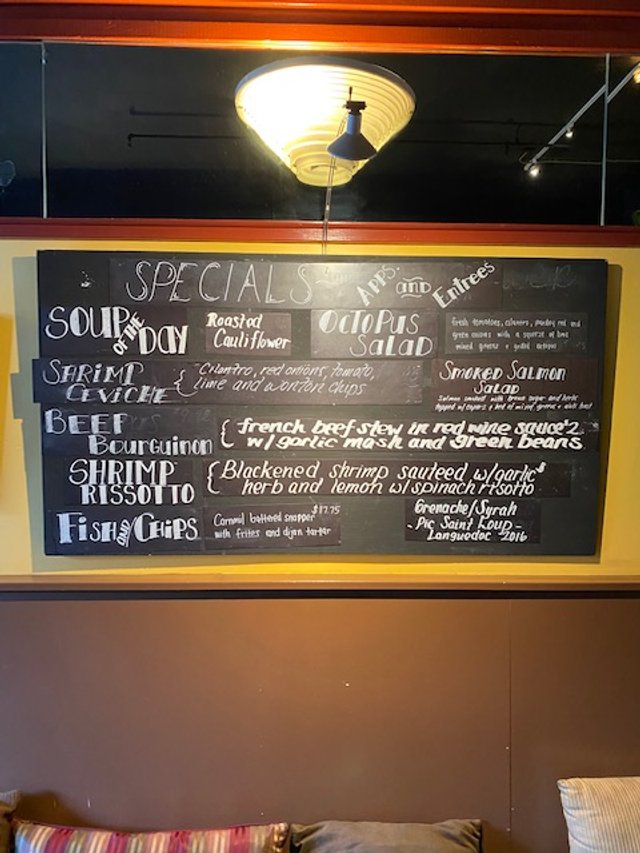 SPECIALS Apps. and Entrees
SOUP OF THE DAY
Roasted
Cauliflower
OCTOPUS
SALAD
fresh tomatoes, cilantro, red and
green onions with a squeeze of lime
mixed greens + grilled octopus
SHRIMP
CEVICHE
{ Cilantro, red onions, tomato,
lime and wonton chips
SMOKED SALMON
SALAD
Salmon smoked with brown sugar and herbs
topped w/ capers + bed of mixed greens +
BEEF
BOURGUINON
{ french beef stew in red wine sauce
w/ garlic mash and green beans
SHRIMP
RISSOTTO
{ Blackened shrimp sauteed w/ garlic
herb and lemon w/ spinach risotto
FISH AND CHIPS
battered snapper $17.75
with frites and dijon tartar
Grenache/Syrah
- Pic Saint Loup -
Languedoc 2016